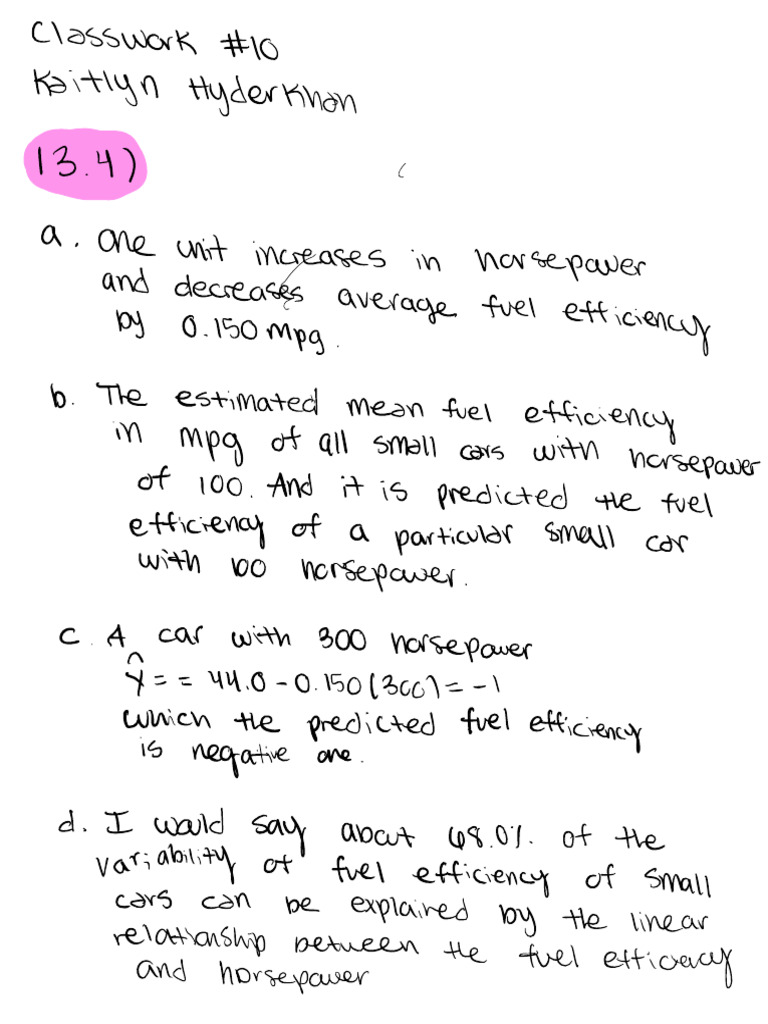 Classwork #10
Kaitlyn Hyderkhan
13.4)
a. One unit increases in horsepower
and decreases average fuel efficiency
by 0.150 mpg.
b. The estimated mean fuel efficiency
in mpg of all small cars with horsepower
of 100. And it is predicted the fuel
efficiency of a particular small car
with 100 horsepower.
c. A car with 300 horsepower
ŷ = = 44.0 - 0.150(300) = -1
which the predicted fuel efficiency
is negative one.
d. I would say about 68.0% of the
variability of fuel efficiency of small
cars can be explained by the linear
relationship between the fuel efficacy
and horsepower